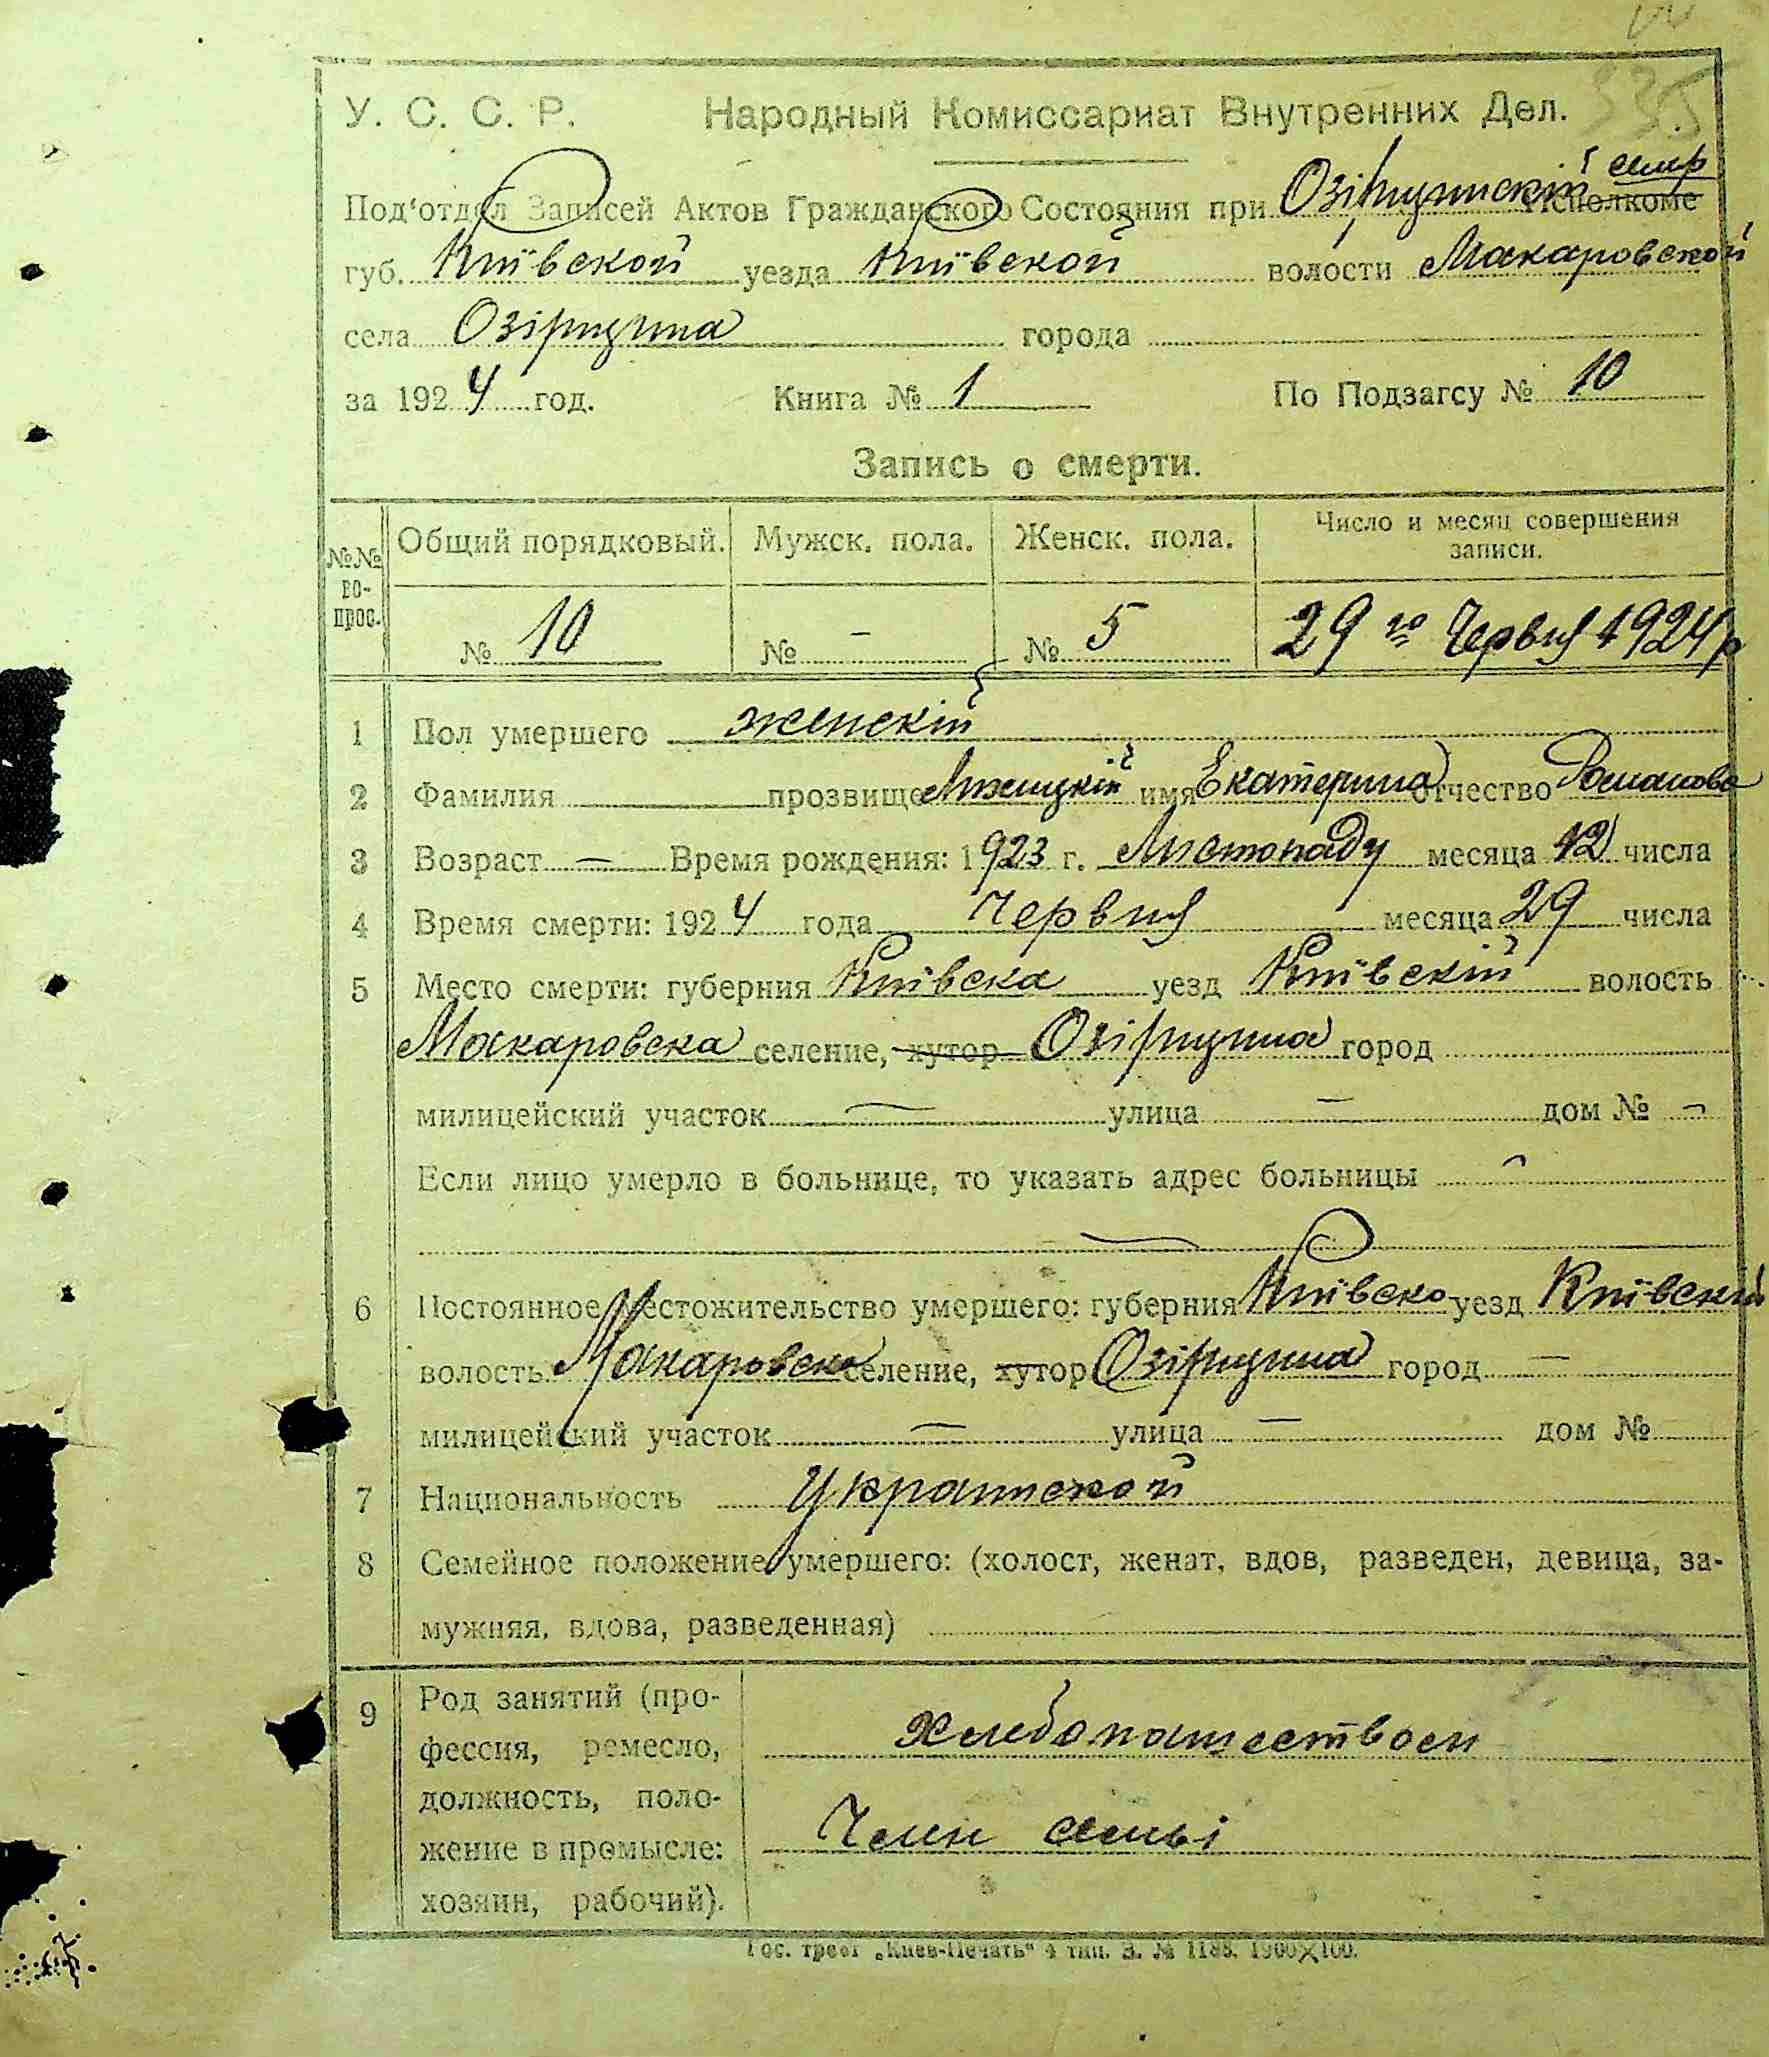 335
У. С. С. Р. Народный Комиссариат Внутренних Дел.
Под'отдел Записей Актов Гражданского Состояния при Озірщинскій Исполкоме
губ. Київской уезда Київской волости Макаровской
села Озірщина города
за 1924 год. Книга № 1 По Подзагсу № 10
Запись о смерти.
№№ во-прос. Общий порядковый. Мужск. пола. Женск. пола. Число и месяц совершения записи.
№ 10 № – № 5 29 го Червня 1924 р
1 Пол умершего женскій
2 Фамилия прозвище имя Екатерина отчество Романова
3 Возраст — Время рождения: 1923 г. Листопаду месяца 12 числа
4 Время смерти: 1924 года Червня месяца 29 числа
5 Место смерти: губерния Київска уезд Київскій волость
Макаровска селение, хутор Озірщина город
милицейский участок — улица — дом № –
Если лицо умерло в больнице, то указать адрес больницы –
—
6 Постоянное местожительство умершего: губерния Київско уезд Київский
волость Макаровско селение, хутор Озірщина город —
милицейский участок — улица — дом №
7 Национальность Украинской
8 Семейное положение умершего: (холост, женат, вдов, разведен, девица, за-
мужняя, вдова, разведенная)
9 Род занятий (про-
фессия, ремесло, хлебопашеством
должность, поло-
жение в промысле: Член семьі
хозяин, рабочий).
Гос. трест „Киев-Печать" 4 тип. З. № 1185. 1900×100.